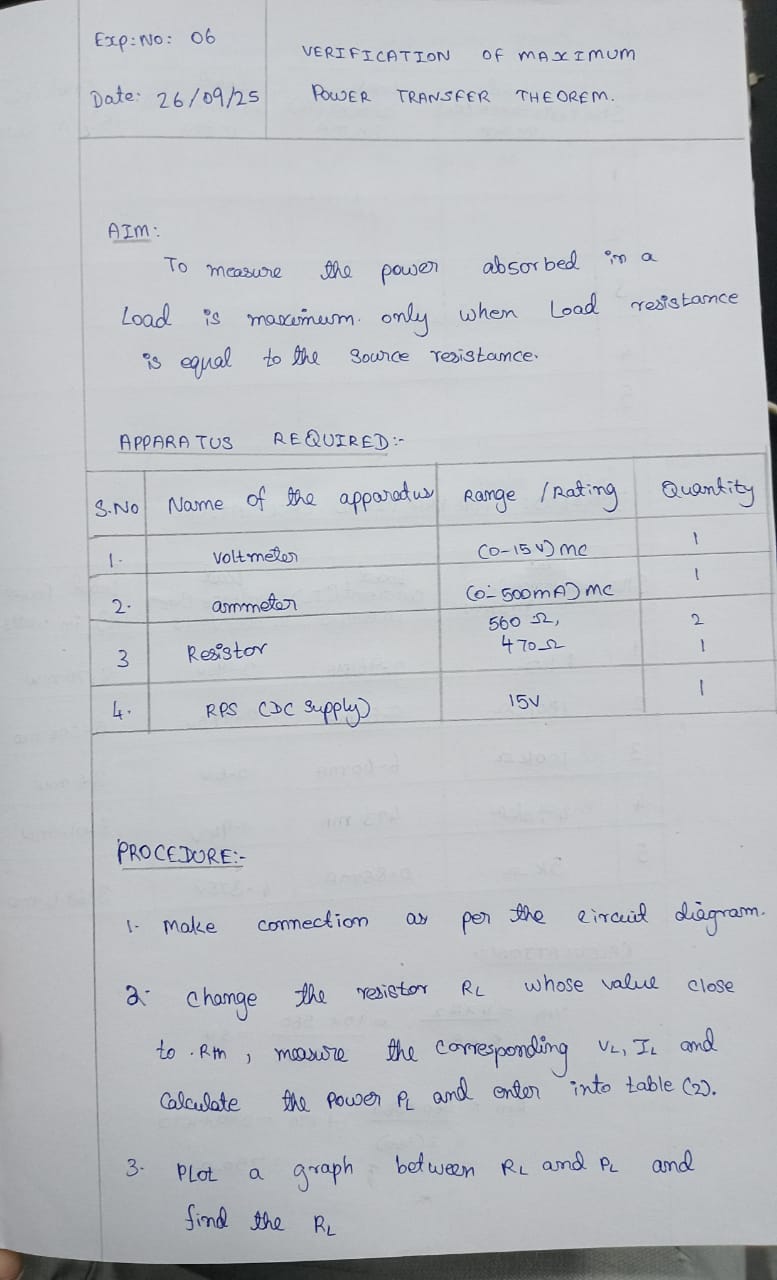 Exp:No: 06
VERIFICATION OF MAXIMUM
Date: 26/09/25
POWER TRANSFER THEOREM.
AIM:
To measure the power absorbed in a
Load is maximum. only when Load resistance
is equal to the source resistance.
APPARATUS REQUIRED:-
S.No Name of the apparatus Range / Rating Quantity
1. Voltmeter (0-15V) MC 1
2. ammeter (0-500mA) MC 1
3 Resistor 560 Ω, 2
470Ω 1
4. RPS (DC Supply) 15V 1
PROCEDURE:-
1. Make connection as per the circuit diagram.
2. Change the resistor RL whose value close
to Rth, measure the corresponding VL, IL and
Calculate the power PL and enter into table (2).
3. Plot a graph between RL and PL and
find the RL